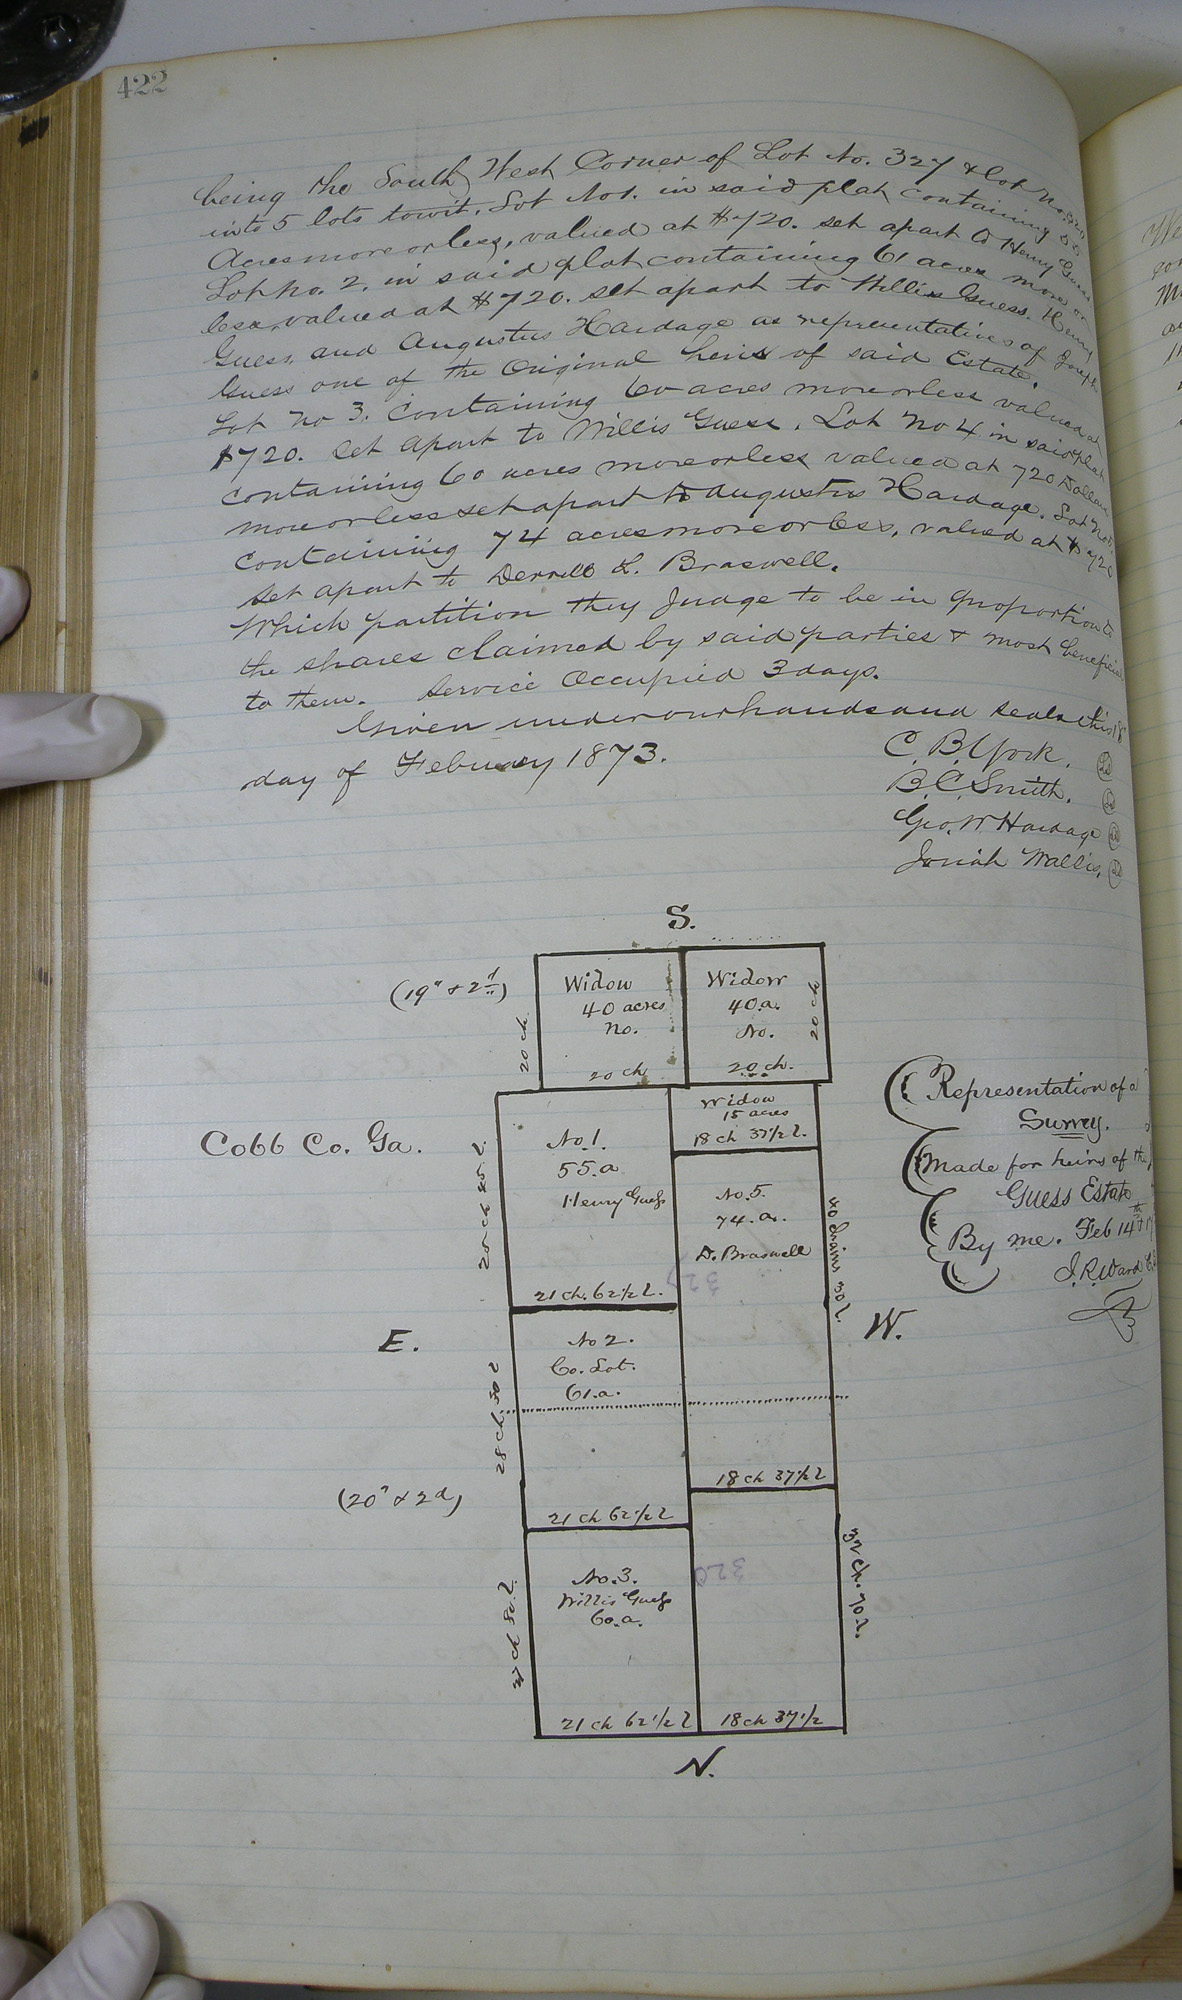 422
being the South West Corner of Lot No. 327 & Lot No. 320
into 5 lots towit. Lot No 1. in said plat containing 55
Acres more or less, valued at $720. set apart to Henry Guess
Lot No. 2. in said plat containing 61 acres more or
less, valued at $720. set apart to Willis Guess. Henry
Guess, and Augustus Hardage as representatives of Joseph
Guess one of the Original heirs of said Estate.
Lot No 3. Containing 60 acres more or less valued at
$720. Set Apart to Willis Guess. Lot No 4 in said plat
containing 60 acres more or less valued at 720 Dollars
more or less set apart to Augustus Hardage. Lot No 5.
containing 74 acres more or less, valued at $720
set apart to Derrell L. Braswell.
Which partition they Judge to be in proportion to
the shares claimed by said parties & most beneficial
to them. Service Occupied 3 days.
Given under our hands and seals this 18
day of Febuary 1873.
C. B. York.
B. C. Smith.
Geo. W Hardage
Josiah Wallis.
S.
(19" & 2d)
Widow
40 acres
No.
20 ch
20 ch
Widow
40.a.
No.
20 ch.
20 ch
Widow
15 acres
18 ch 37½ l.
Cobb Co. Ga.
No. 1.
55.a
Henry Guess
21 ch. 62½ l.
No. 5.
74. a.
D. Braswell
327
Representation of a
Survey.
Made for heirs of the
Guess Estate
By me. Feb 14th
J. R. Ward
E.
W.
No 2.
Co. Lot.
61.a.
28 ch. 50 l
21 ch 62½ l
18 ch 37½ l
(20" & 2d)
No. 3.
Willis Guess
60.a.
320
32 ch. 70 l.
21 ch 62½ l
18 ch 37½
N.